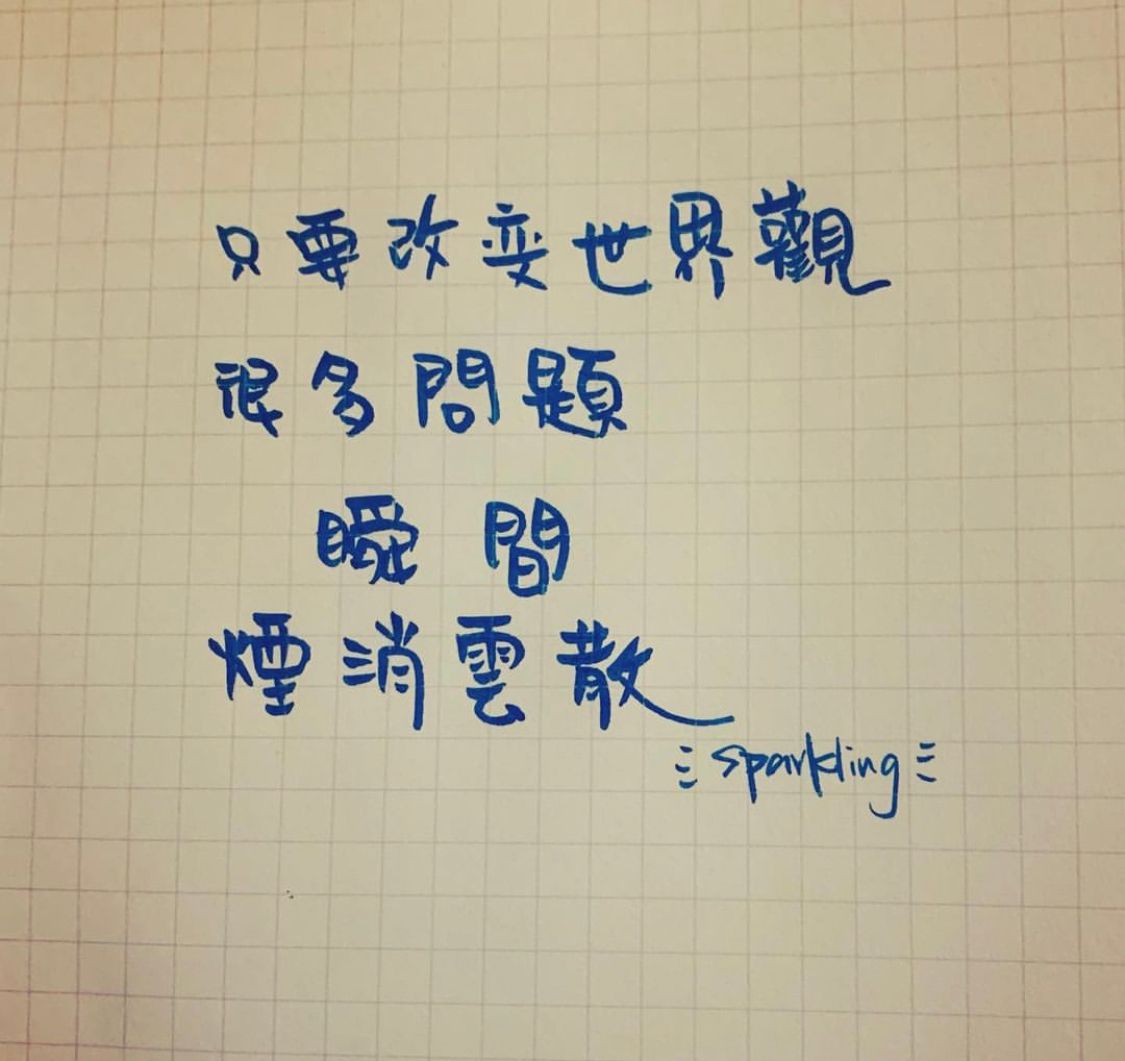 只要改变世界觀
很多問題
瞬間
煙消雲散
sparkling